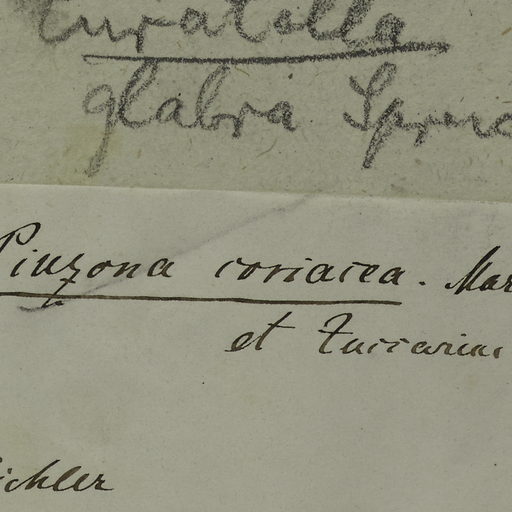 Curatella
glabra Spren
Pinzona coriacea. Mar
et Zuccarini
ichler